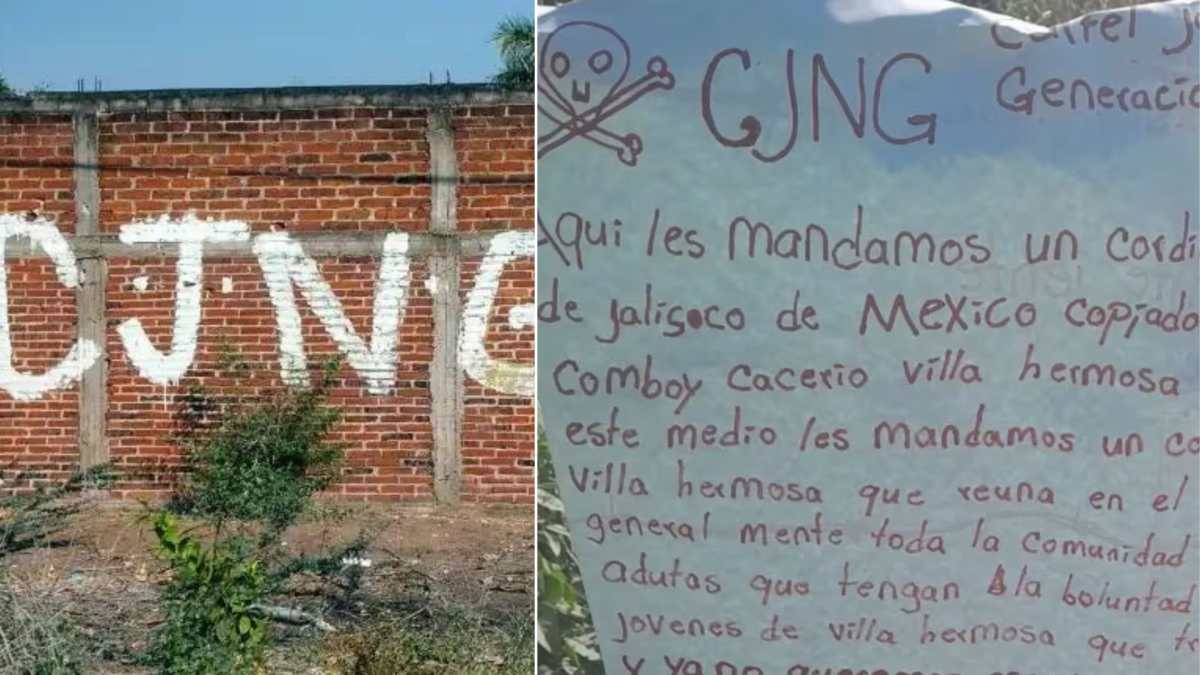 CJNG
CJNG
Cartel J
Generació
Aqui les mandamos un cordi
de jalisoco de Mexico copjado
comboy cacerio villa hermosa
este medio les mandamos un co
villa hermosa que reuna en el
general mente toda la comunidad
adutas que tengan la boluntad
jovenes de villa hermosa que te
y ya no queremos